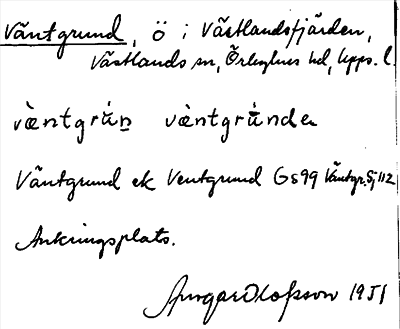 Väntgrund, ö i Västlandsfjärden,
Västlands sn, Örbyhus hd, Upps. l.
væ̀ntgrún̥ væ̀ntgrúnde
Väntgrund ek Ventgrund Gs99 Väntgr. Sj 112
Ankringsplats.
Ansgar Olofsson 1951